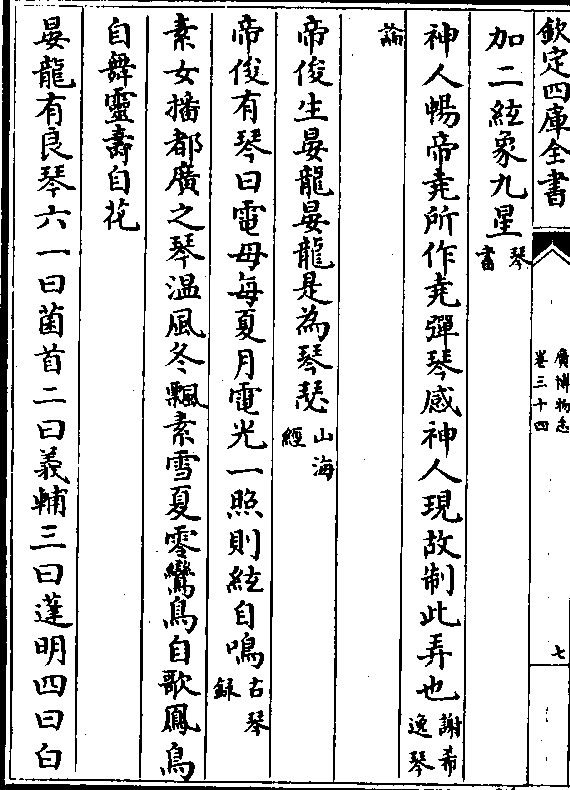 欽定四庫全書
廣博物志
卷三十四
七
加二絃象九星琴書
神人暢帝堯所作堯彈琴感神人現故制此弄也謝希逸琴
論
帝俊生晏龍晏龍是為琴瑟山海經
帝俊有琴曰電母每夏月電光一照則絃自鳴古琴錄
素女播都廣之琴溫風冬飄素雪夏零鸞鳥自歌鳳鳥
自舞靈壽自花
晏龍有良琴六一曰菌首二曰義輔三曰蓬明四曰白